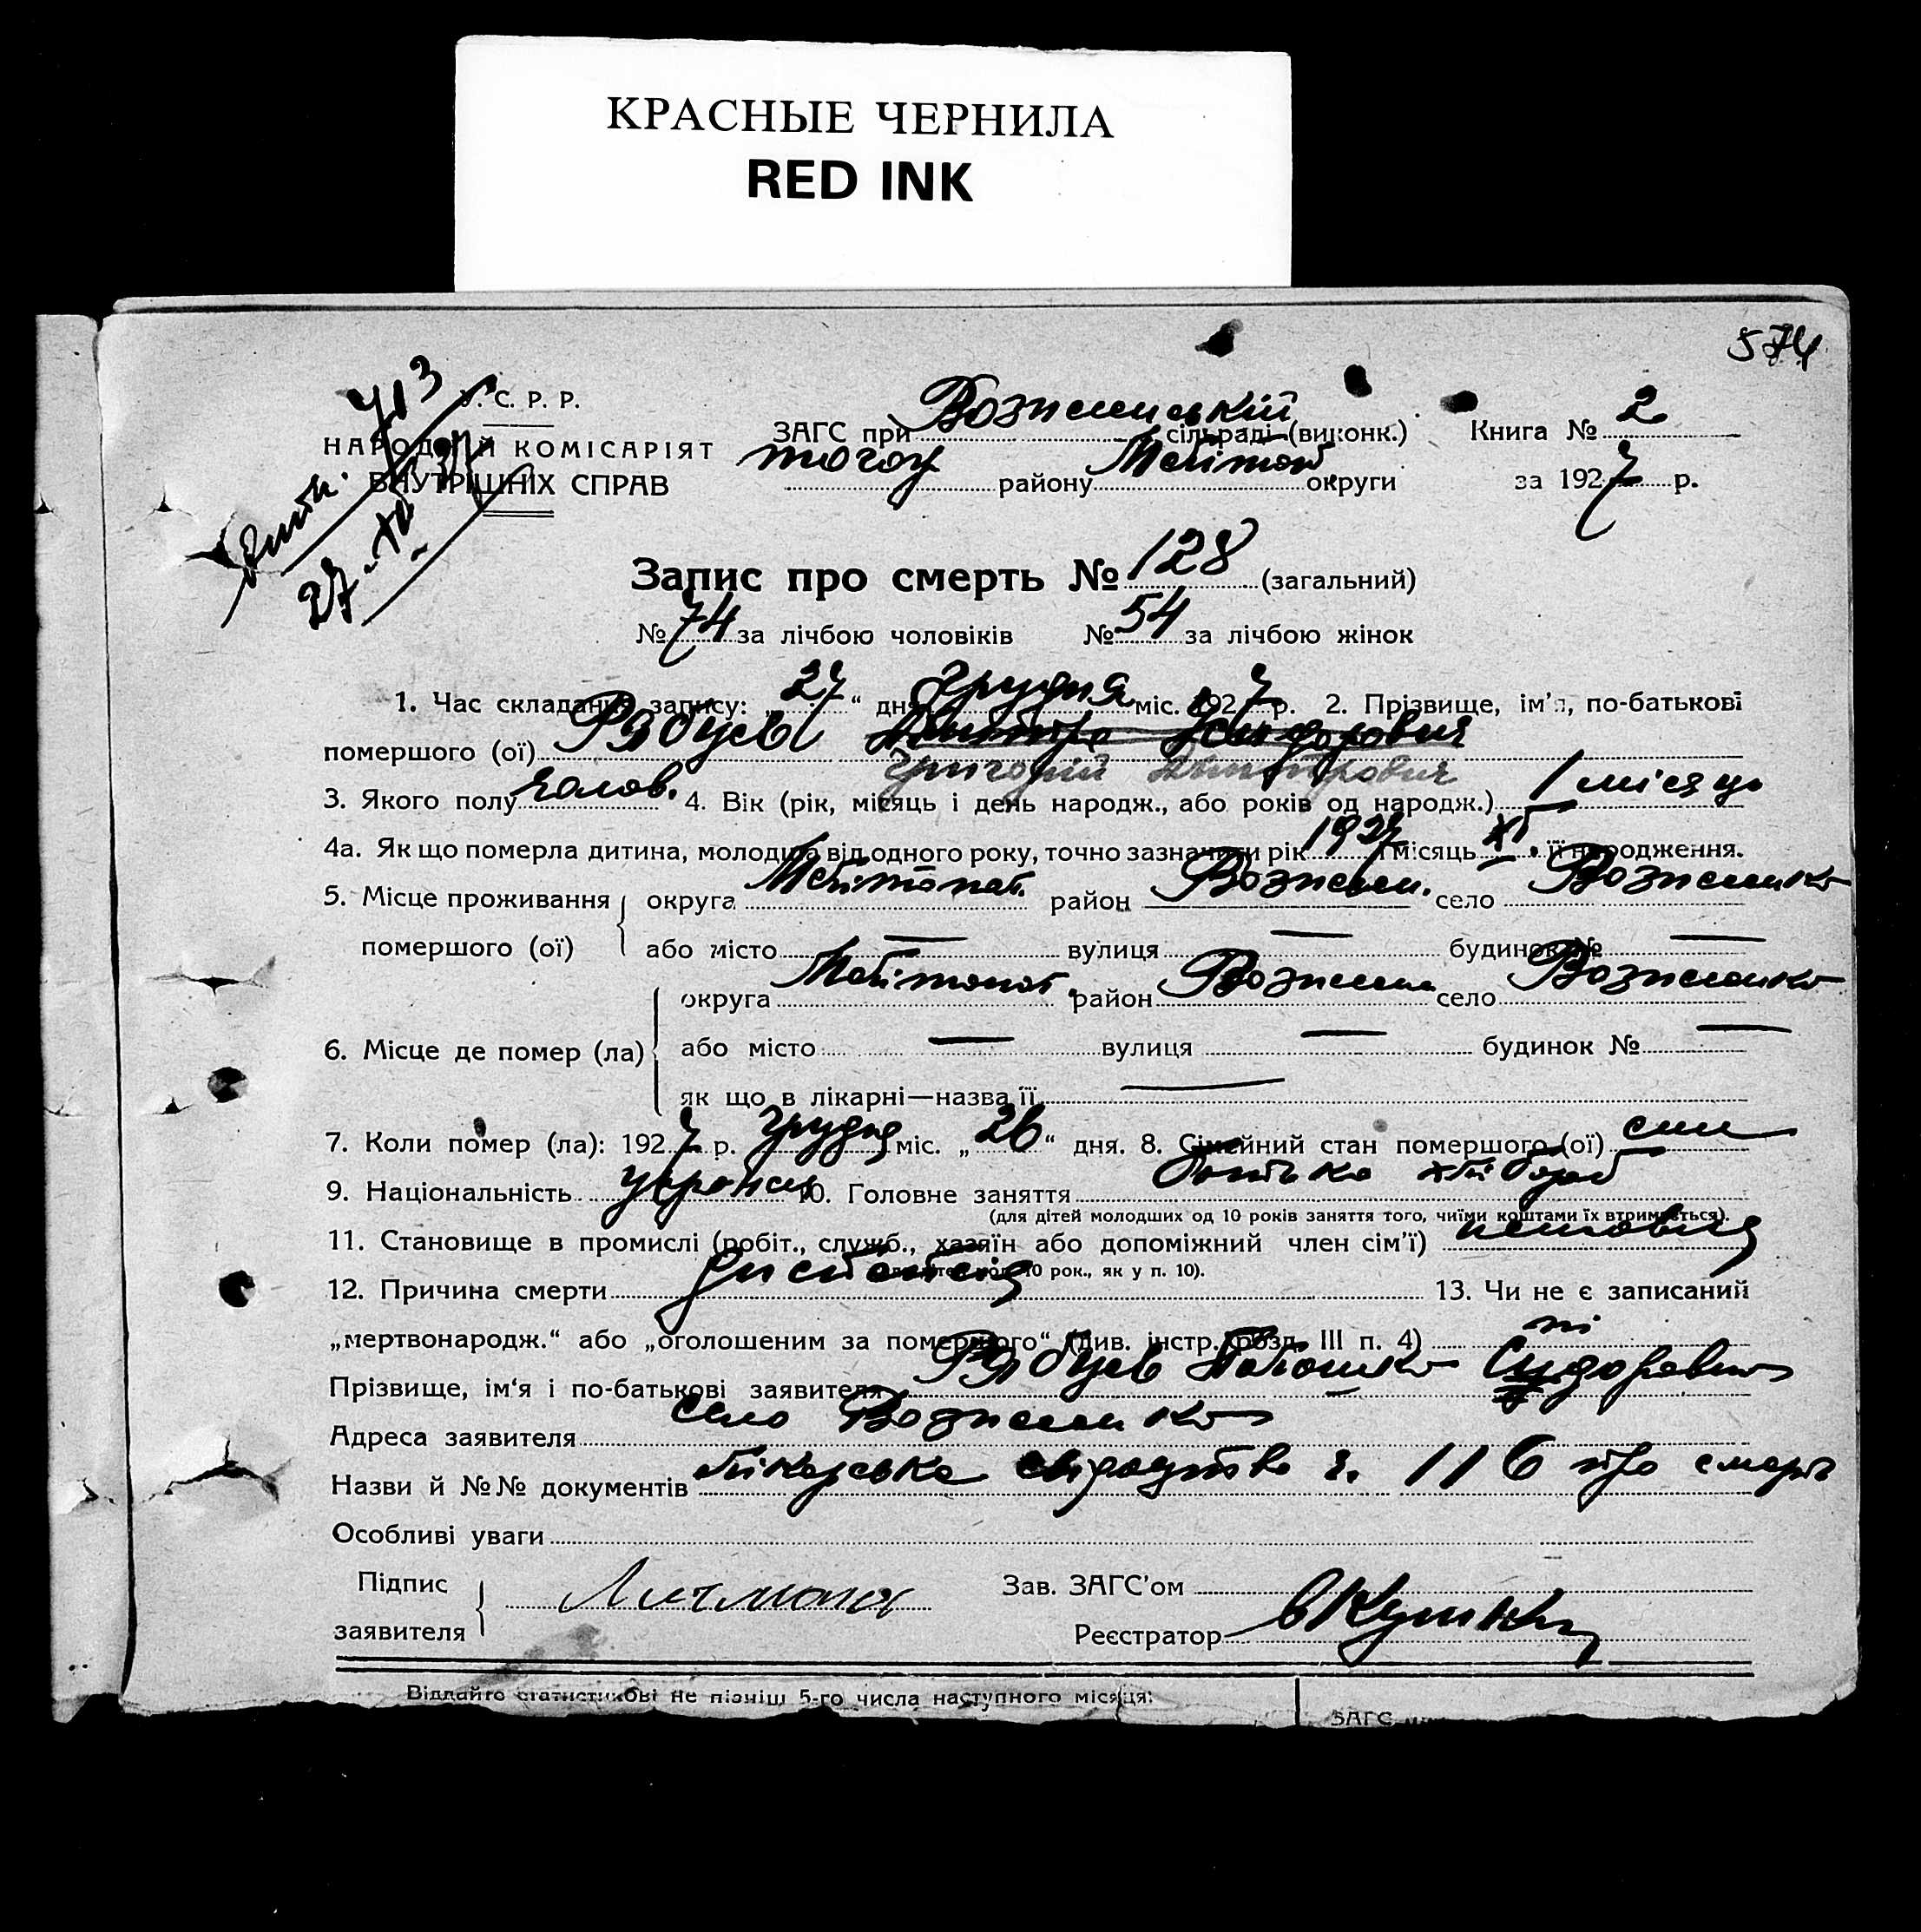 КРАСНЫЕ ЧЕРНИЛА
RED INK
574
713
27. XII 27
У. С. Р. Р.
НАРОДНІЙ КОМІСАРІЯТ
ВНУТРІШНІХ СПРАВ
ЗАГС при сільраді (виконк.) Книга № 2
району округи за 1927 р.
Запис про смерть № 128 (загальний)
№ 74 за лічбою чоловіків № 54 за лічбою жінок
1. Час складання запису: „27“ дня грудня міс. 1927 р. 2. Прізвище, ім'я, по-батькові
помершого (ої) Рябцев Дмитро
Григорій Дмитрович
3. Якого полу чолов. 4. Вік (рік, місяць і день народж., або років од народж.) 1 місяць
4а. Як що померла дитина, молодша від одного року, точно зазначити рік 1927 і місяць XI. її народження.
5. Місце проживання округа Мелітопол. район Вознесен. село Вознесенка
помершого (ої) або місто — вулиця — будинок № —
округа Мелітопол. район Вознесен село Вознесенка
6. Місце де помер (ла) або місто — вулиця — будинок № —
як що в лікарні—назва її —
7. Коли помер (ла): 1927 р. грудня міс. „26“ дня. 8. Сімейний стан помершого (ої) син
9. Національність українец 10. Головне заняття батька хлібороб
(для дітей молодших од 10 років заняття того, чиїми коштами їх втримується).
11. Становище в промислі (робіт., служб., хазяїн або допоміжний член сім'ї)
(для дітей мол. 10 рок., як у п. 10).
12. Причина смерти 13. Чи не є записаний
„мертвонародж.“ або „оголошеним за померлого“ (див. інстр. розд. III п. 4) ні
Прізвище, ім'я і по-батькові заявителя Рябцев Сидорович
Адреса заявителя село Вознесенка
Назви й №№ документів лікарське свідоцтво ч. 116 про смерть
Особливі уваги
Підпис Зав. ЗАГС'ом
заявителя Реєстратор
Віддайте статистикові не пізніш 5-го числа наступного місяця:
ЗАГС